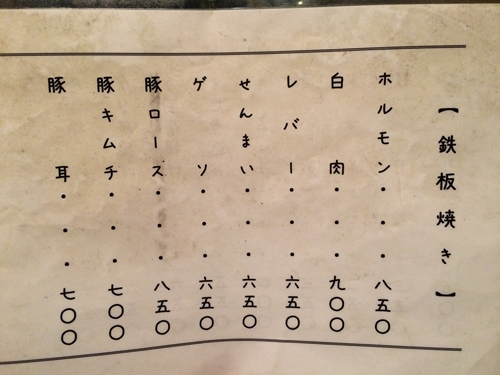 【鉄板焼き】
ホルモン・・・八五〇
白肉・・・九〇〇
レバー・・・六五〇
せんまい・・・六五〇
ゲソ・・・六五〇
豚ロース・・・八五〇
豚キムチ・・・七〇〇
豚耳・・・七〇〇